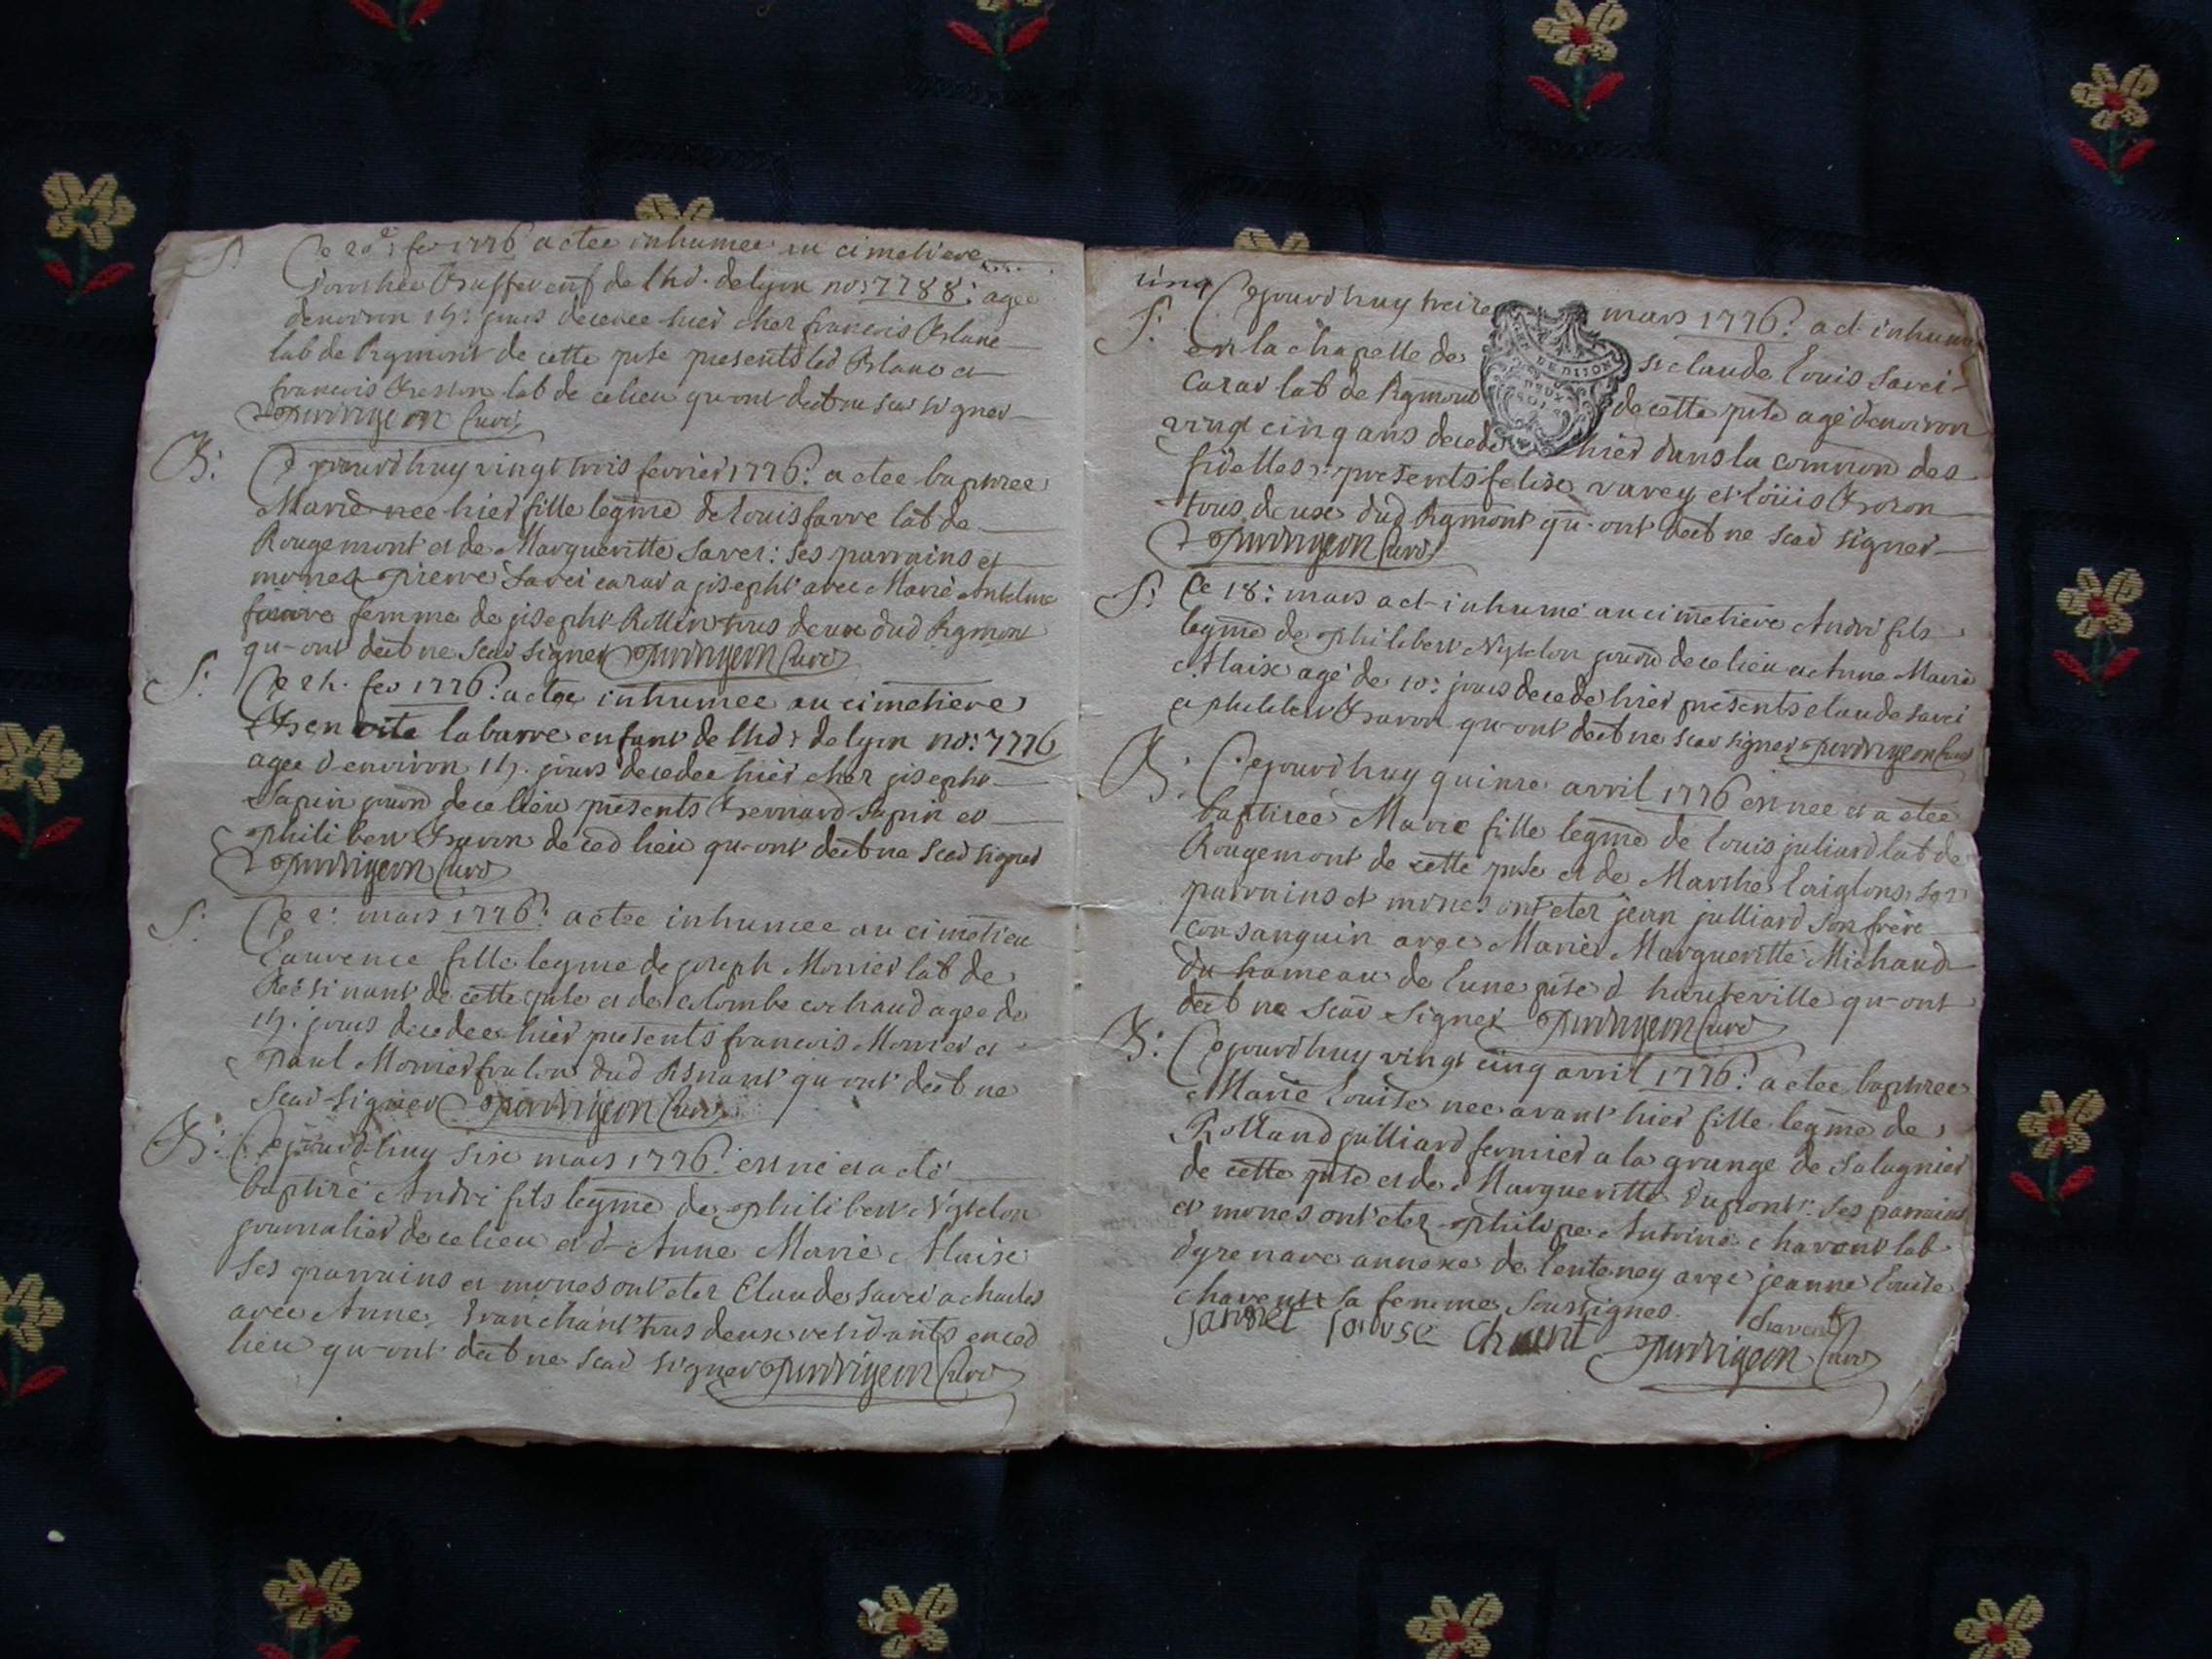 S. Ce 20e: fev 1776 a etee inhumee au cimetiere
de lhd. de lyon no: 7788: agee
denviron 15: jours decedee hier chez francois Blanc
lab de Rgmont de cette pste presents led Blanc et
francois Besson lab de ce lieu qu-ont declt ne scav signer
curé
B: Cejourdhuy vingt trois fevrier 1776: a etee baptizee
Marie nee hier fille legme de Louis favre lab de
Rougemont et de Margueritte Savei: ses parrains et
mones pierre Savei carar a joseph avec Marie Anthelme
favre femme de joseph Rollin tous deux dud Rgmont
qu-ont declt ne scav signer curé
S: Ce 24. fev 1776: a etee inhumee au cimetiere
labarre enfant de lhd: de lyon no: 7776
agee d environ 15. jours decedee hier chez joseph
Sapin journ de ce lieu presents Bernard Sapin et
philibert Bavon de ced lieu qu-ont declt ne scav signer
curé
S: Ce 2: mars 1776: a etee inhumee au cimetiere
Laurence fille legme de joseph Monier lab de
Resinant de cette pste et de Colombe cochaud agee de
15. jours decedee hier presents francois Monier et
paul Monier dud Rsnant qu-ont declt ne
scav signer curé
B: Cejourd-huy six mars 1776: est né et a eté
baptizé André fils legme de philibert Nyvelon
journalier de ce lieu et d-Anne Marie Alaise
ses parrains et mones ont eter Claude Savei a charles
avec Anne tranchant tous deux residants en ced
lieu qu-ont declt ne scav signer curé
cinq
S: Cejourdhuy treize mars 1776: a et inhumé
en la chapelle de st claude Louis Savei
carar lab de Rgmond de cette pste agé denviron
vingt cinq ans decedé hier dans la comnion des
fidelles: presents felix varey et Loüis Boron
tous deux dud Rgmont qu-ont declt ne scav signer
curé
S: Ce 18: mars a et inhumé au cimetiere André fils
legme de philibert Nyvelon journ de ce lieu et Anne Marie
Alaise agé de 10: jours decedé hier presents claude Savei
et philibert Bavon qu-ont declt ne scav signer curé
B: Cejourdhuy quinze avril 1776 est nee et a etee
baptizee Marie fille legme de Louis juliard lab de
Rougemont de cette pste et de Marthe Laiglons, ses
parrains et mones ont eter jean julliard son frere
consanguin avec Marie Margueritte Michaud
du hameau de Lune pste d hauteville qu-ont
declt ne scav signer curé
B: Cejourdhuy vingt cinq avril 1776: a etee baptizee
Marie Louise nee avant hier fille legme de
Rolland julliard fermier a la grange de Salagnier
de cette pste et de Margueritte Dupont: ses parrains
et mones ont eter philipe Antoine chavent lab
dyzenave annexe de lentenay avec jeanne Louise
chavent sa femme soussignes. chavent
Janne Louise Chavent curé